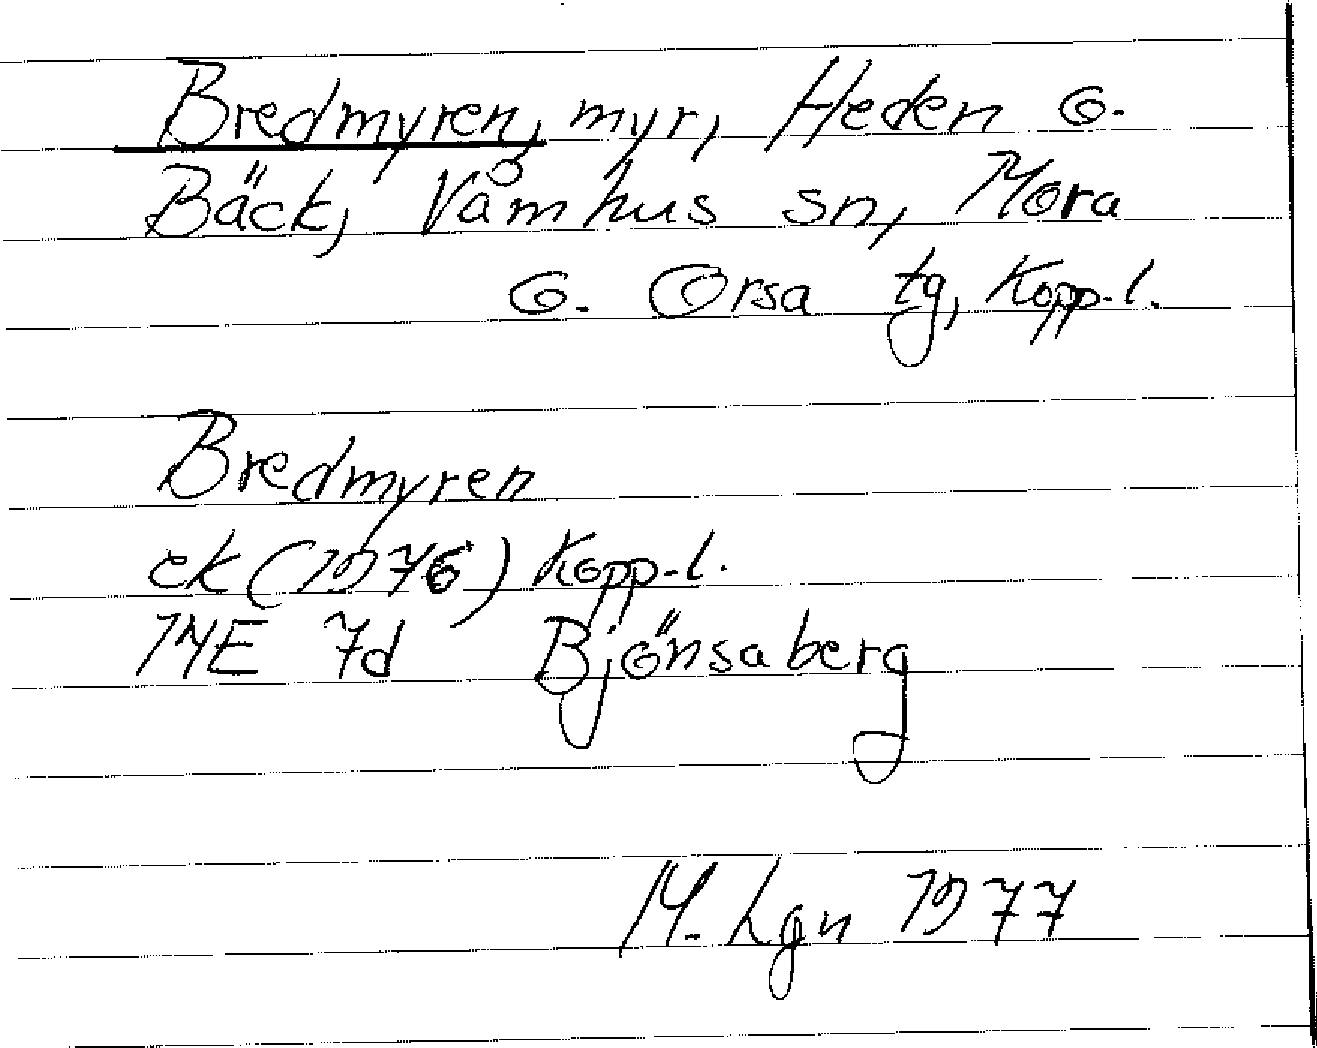 Bredmyren, myr, Heden o.
Bäck, Våmhus sn, Mora
o. Orsa tg, Kopp.l.
Bredmyren
ek (1976) Kopp.l.
14E 7d Bjönsaberg
M. Lgn 1977